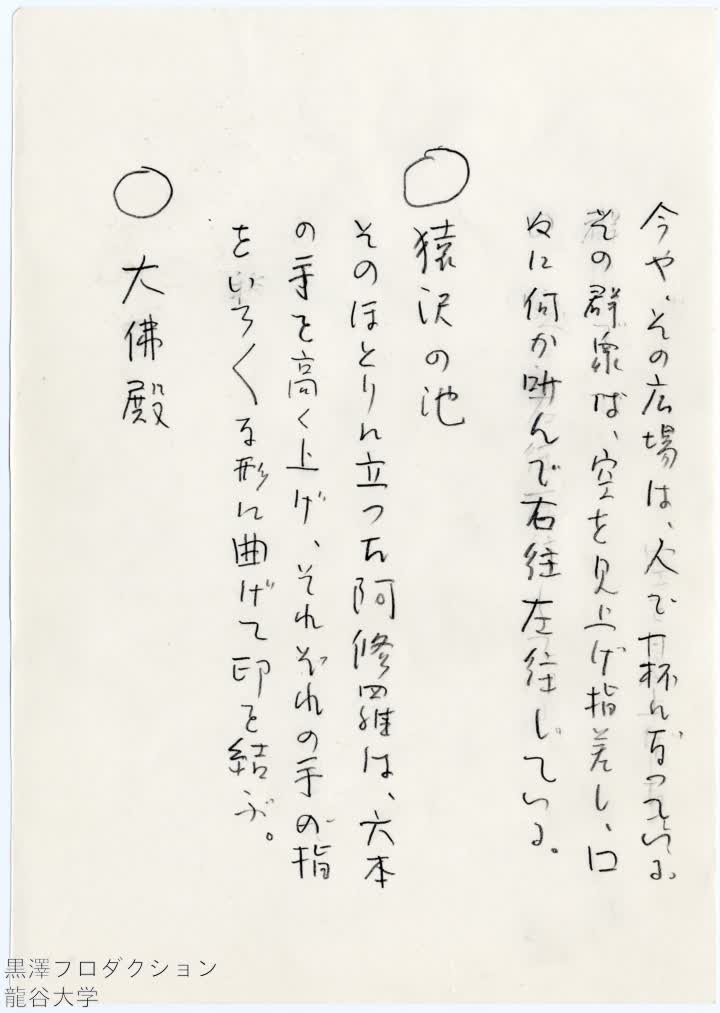 今や、その広場は、人で一杯になっている。
その群衆は、空を見上げ指差し、口
々に何か叫んで右往左往している。
○ 猿沢の池
そのほとりに立った阿修羅は、六本
の手を高く上げ、それぞれの手の指
をいろ〱な形に曲げて印を結ぶ。
○ 大佛殿
黒澤プロダクション
龍谷大学